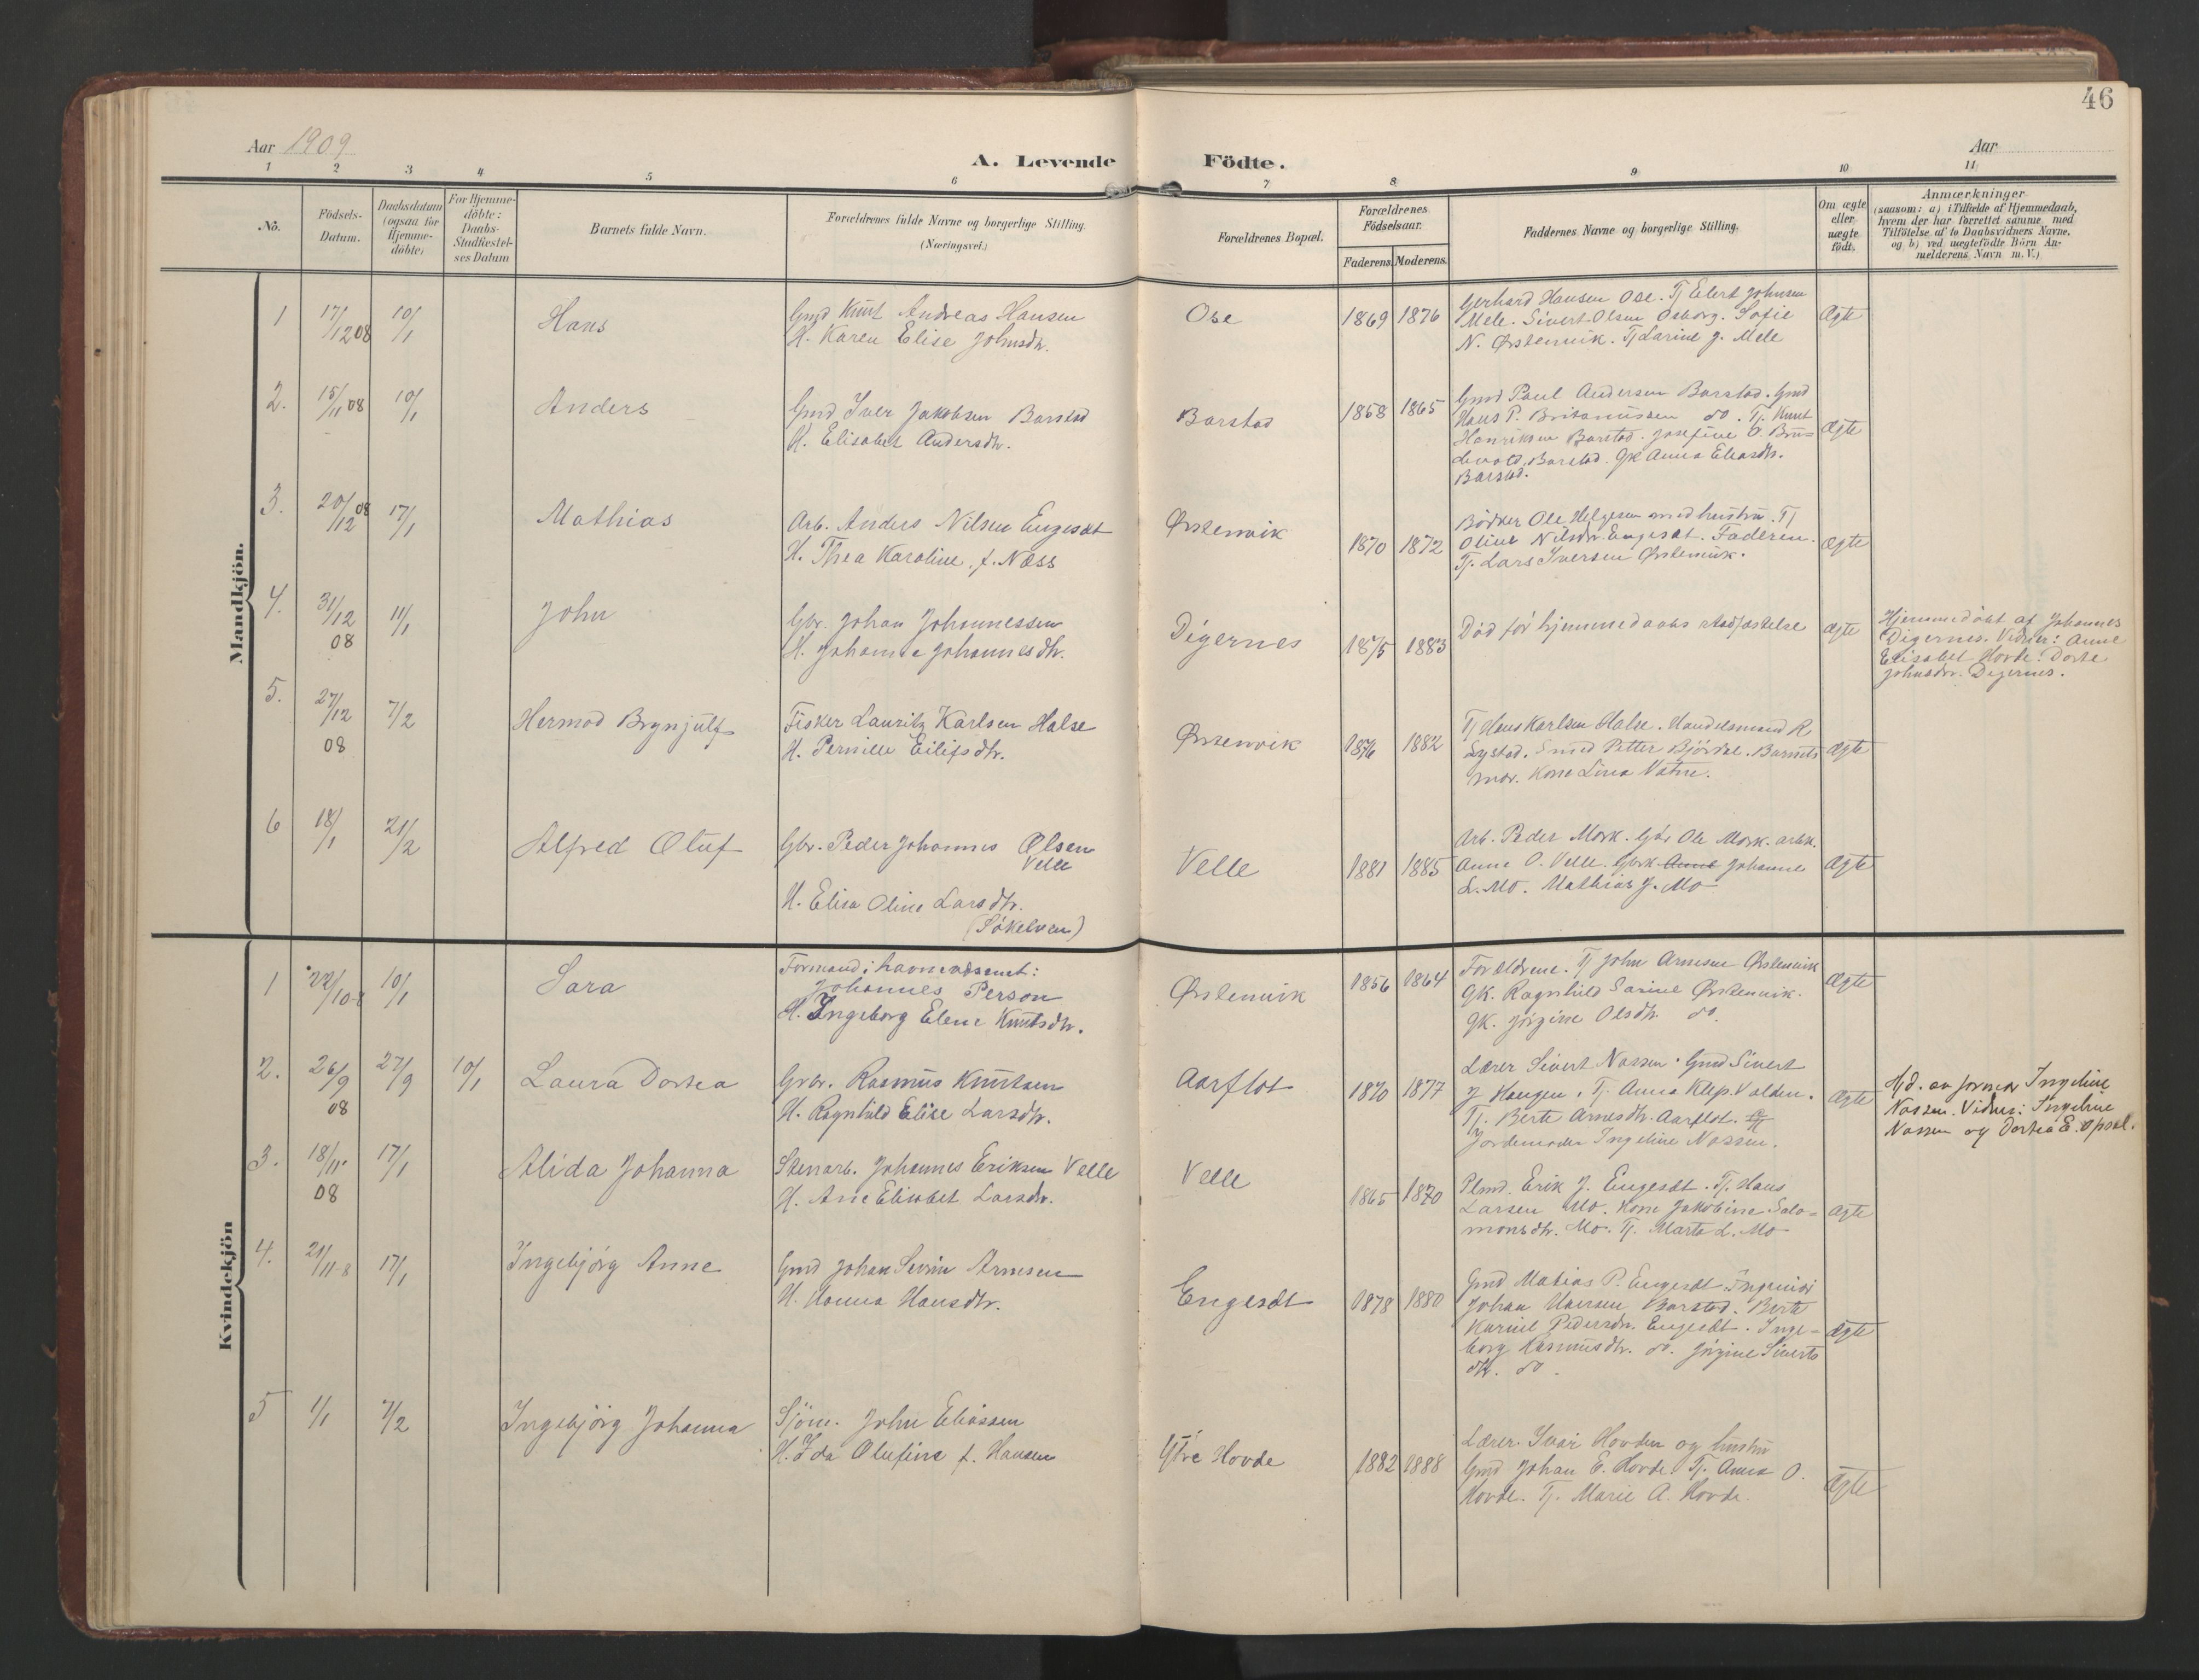 46
Aar 1909
A. Levende Födte.
Aar
1 2 3 4 5 6 7 8 9 10 11
No.
Födsels-
Datum.
Daabsdatum
(ogsaa for
Hjemme-
döbte)
For Hjemme-
döbte:
Daabs-
Stadfæstel-
ses Datum
Barnets fulde Navn.
Forældrenes fulde Navne og borgerlige Stilling.
(Næringsvei.)
Forældrenes Bopæl.
Forældrenes
Födselsaar.
Faderens. Moderens.
Faddernes Navne og borgerlige Stilling.
Om ægte
eller
uægte
födt.
Anmærkninger
(saasom: a) i Tilfælde af Hjemmedaab,
hvem der har forrettet samme med
Tilföielse af to Daabsvidners Navne,
og b) ved uægtefödte Börn An-
melderens Navn m.V.)
Mandkjön.
1
17/12 08
10/1
Hans
Gmd Knut Andreas Hansen
H. Karen Elise Johnsdtr.
Ose
1869 1876
Gerhard Hansen Ose. Tj Elert Johnsen
Mele. Sivert Olsen Osborg. Sofie
N. Ørstenvik. Tj Larine J. Mele
Ægte
2.
15/11 08
10/1
Anders
Gmd Iver Jakobsen Barstad
H. Elisabet Andersdtr.
Barstad
1858 1865
Gmd Paul Andersen Barstad. Gmd
Hans P. do. Tj. Knut
Henriksen Barstad. Josefine O. Bru-
devold, Barstad. Gk Anna Eliasdtr.
Barstad.
Ægte
3.
20/12 08
17/1
Mathias
Arb. Anders Nilsen Engesæt
H. Thea Karoline f. Næss
Ørstenvik
1870 1872
Bödker Ole Helgesen med hustru. Tj
Oline Nilsdtr Engesæt. Faderen.
Tj. Lars Iversen Ørstenvik.
Ægte
4.
31/12
08
11/1
John
Gbr. Johan Johannessen
H. Johanna Johannesdtr.
Digernes
1875 1883
Död för hjemmedaabs stadfæstelse
Ægte
Hjemmedöbt af Johannes
Digernes. Vidner: Anne
Elisabet Hovde. Dorte
Johnsdtr. Digernes.
5.
27/12
08
7/2
Hermod Brynjulf
Fisker Lauritz Karlsen Halse
H. Pernille Eilifsdtr.
Ørstenvik
1876 1882
Tj Hans Karlsen Halse. Handelsmand R.
Systad. Smed Petter Björdal. Barnets
mor. Kone Lina Vatne.
Ægte
6
18/1
21/2
Alfred Oluf
Gbr. Peder Johannes Olsen
Velle
H. Elisa Oline Larsdtr.
(Sökelven)
Velle
1881 1885
Arb. Peder Mork. Gbr Ole Mork. arbk.
Anne O. Velle. Gbrk Anne Johanne
L. Mo. Mathias J. Mo
Ægte
Kvindekjön
1
22/10-8
10/1
Sara
Formand i havnevæsenet:
Johannes Person
H. Ingeborg Elene Knutsdtr.
Ørstenvik
1856 1864
Forældrene. Tj John Arnesen Ørstenvik
Gk. Ragnhild Sarine Ørstenvik.
Gk. Jörgine Olsdtr. do.
Ægte
2.
26/9
08
27/9
10/1
Laura Dortea
Gbr. Rasmus Knutsen
H. Ragnhild Elise Larsdtr.
Aarflot
1870 1877
Lærer Sivert Nassen. Gmd Sivert
J Haugen. Tj. Anna Klep. Volden.
Tj. Berte Arnesdtr. Aarflot.
Jordemoder Ingeline Nassen.
Ægte
Hjd. av jormor Ingeline
Nassen. Vidner: Ingeline
Nassen og Dortea E. Opsal.
3.
18/11
08
17/1
Alida Johanna
Stenarb. Johannes Eriksen Velle
H. Ane Elisabet Larsdtr.
Velle
1865 1870
Plmd. Erik J. Engesæt. Tj. Hans
Larsen Mo. Kone Jakobine Salo-
monsdtr. Mo. Tj. Marta L. Mo
Ægte
4.
21/11-8
17/1
Ingebjörg Anne
Gmd Johan Sivrin Arnesen
H. Hanna Hansdtr.
Engesæt
1878 1880
Gmd Matias P. Engesæt.
Johan Hansen Barstad. Berte
Karine Pedersdtr. Engesæt. Inge-
borg Rasmusdtr. do. Jörgine Siverts
dtr. do.
Ægte
5
1/1
7/2
Ingebjörg Johanna
Sjöm. John Eliassen
H. Ida Olufine f. Hansen
Ytre Hovde
1882 1888
Lærer Ivar Hovden og hustru
Gmd Johan E. Hovde. Tj. Anna O.
Hovde. Tj. Marie A. Hovde.
Ægte